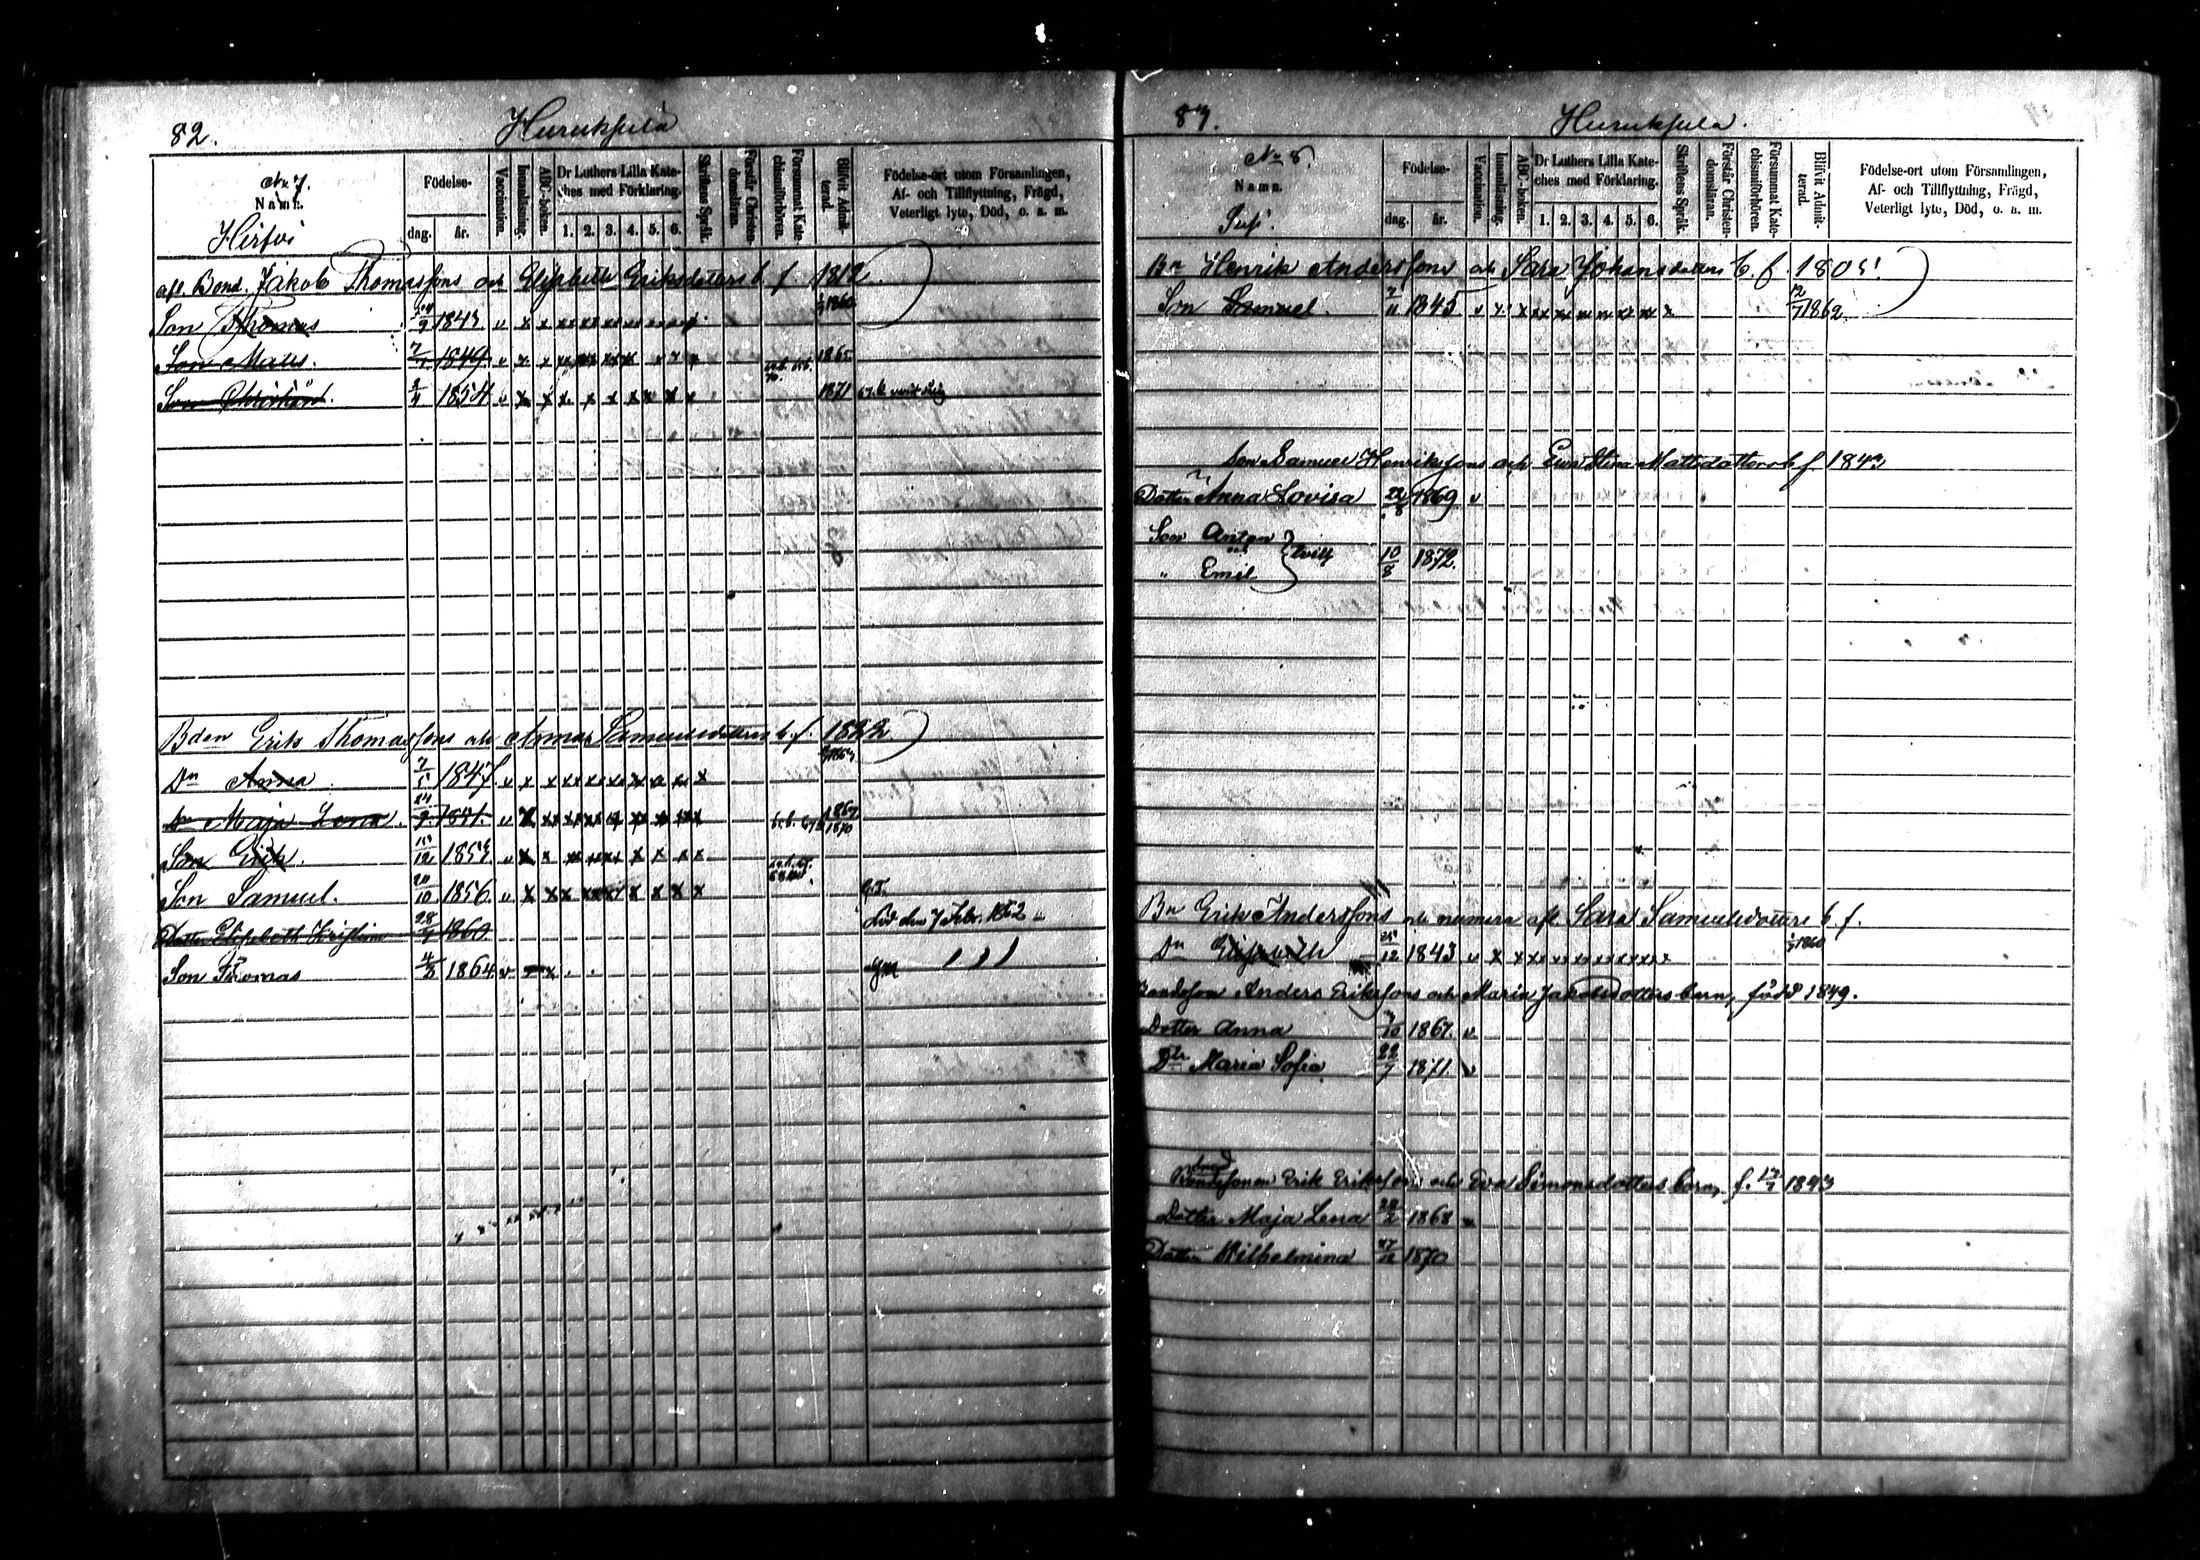 82.
Huruksela
No 7.
Namn.
Hirfvi
Födelse-
dag.
år.
Vaccination.
Innanläsning.
ABC-boken.
Dr Luthers Lilla Kate-
ches med Förklaring.
1. 2. 3. 4. 5. 6.
Skriftens Språk.
Förstår Christen-
domsläran.
Försummat Kate-
chismiförhören.
Blifvit Admit-
terad.
Födelse-ort utom Församlingen,
Af- och Tillflyttning, Frägd,
Veterligt lyte, Död, o. a. m.
afl. Bond. Jakob Thomassons och Elisabeth Eriksdotters b. f. 1812
Son Thomas 24/9 1843 v x x xx xx xx xx 1860
Son Matts. 7/4 1847 v x x 1865
Son Christian. 2/4 1854 v x x x x x x x x x 1871
Bden Erik Thomassons och Anna Samuelsdotters b. f. 1822
Dn Anna 7/5 1847 v x x xx xx xx x
Dn Maja Lena. 24/9 1851. v x xx 1867 1870
Son Erik. 15/12 1853 v x x xx x x x x
Son Samuel. 20/10 1856 v x x x x x x x
Dotter Elisabeth Kristina 28/9 1860 död den 7 Febr. 1862
Son Thomas 4/3 1864 v x
83.
Huruksela.
No 8.
Namn.
Susi.
Födelse-
dag.
år.
Vaccination.
Innanläsning.
ABC-boken.
Dr Luthers Lilla Kate-
ches med Förklaring.
1. 2. 3. 4. 5. 6.
Skriftens Språk.
Förstår Christen-
domsläran.
Försummat Kate-
chismiförhören.
Blifvit Admit-
terad.
Födelse-ort utom Församlingen,
Af- och Tillflyttning, Frägd,
Veterligt lyte, Död, o. a. m.
Bn Henrik Anderssons och Sara Johansdotters b. f. 1805
Son Samuel. 7/11 1845 v x x xx xx xx xx xx x 12/7 1862
Son Samuel Henrikssons och Eva Stina Mattsdotters b f 1843
Dotter Anna Lovisa 22/8 1869 v
Son Anton
och } tvill 10/8 1872.
" Emil
Bn Erik Anderssons och numera afl. Sara Samuelsdotters b. f.
Dn Elisabeth 25/12 1843 v x x xx xx xx xx xx x 1860
Bondeson Anders Erikssons och Maria Jakobsdotters barn, född 1849.
Dotter Anna 1867. v
Dtr Maria Sofia 22/7 1871. v
Bondesonen Erik Erikssons och Eva Simonsdotters barn, f. 1843
Dotter Maja Lena 28/2 1868 v
Dotter Wilhelmina 1870